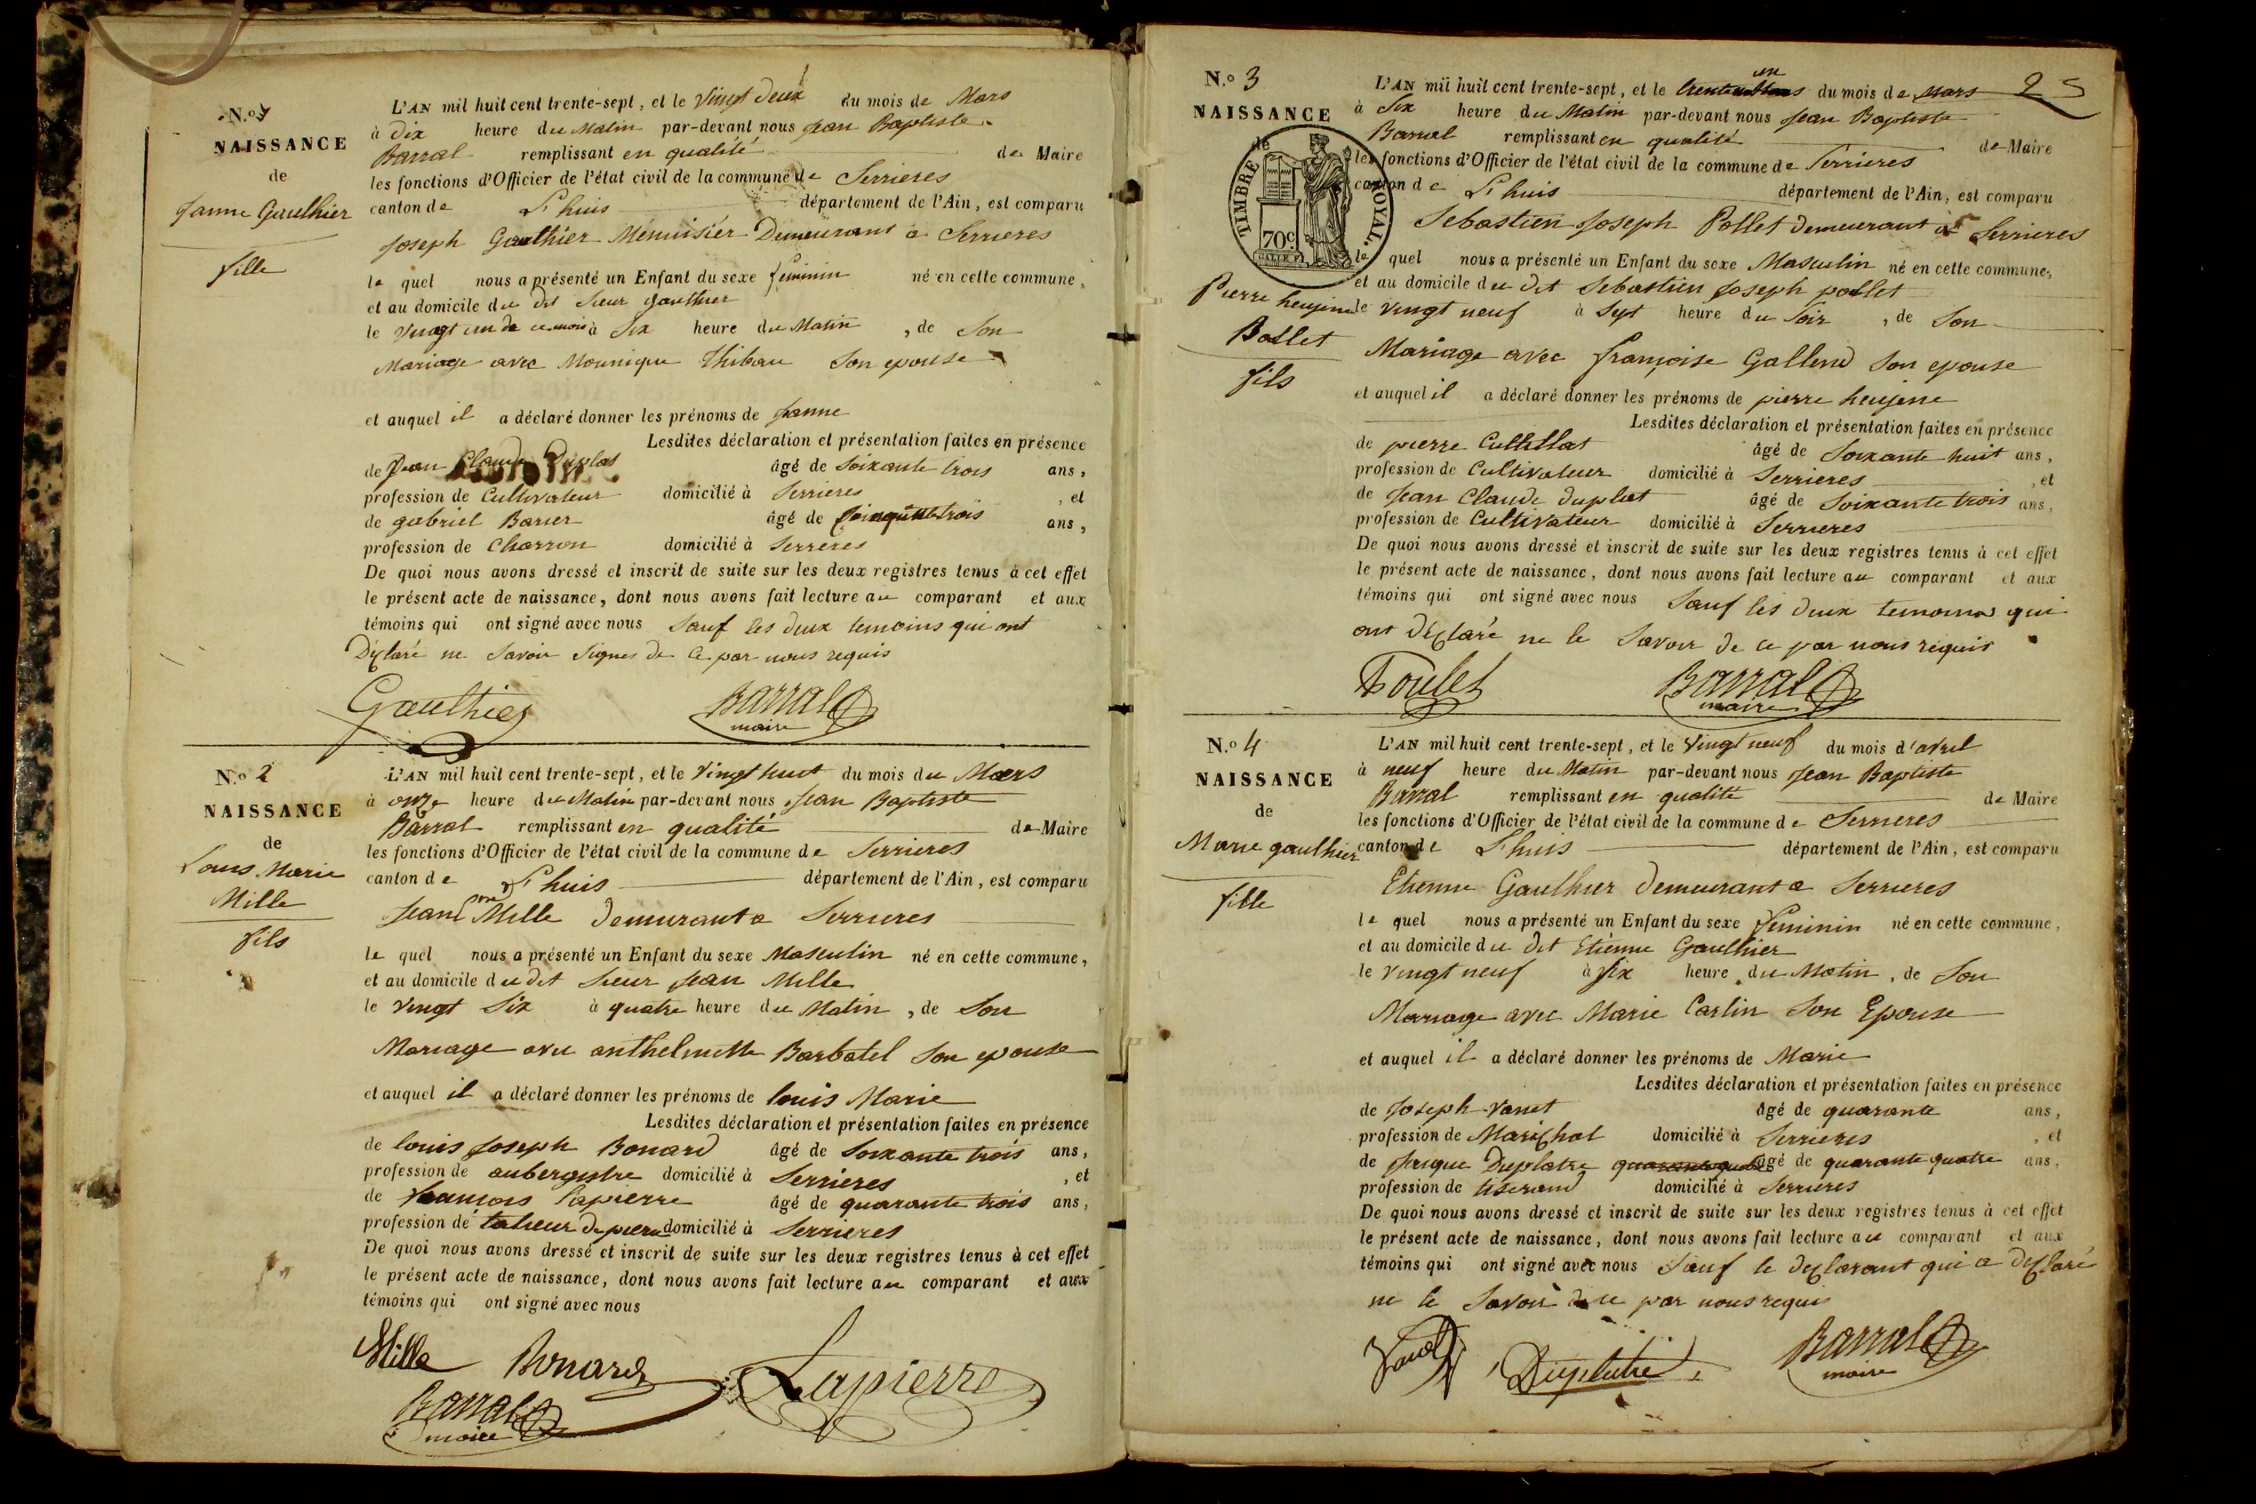 N.o 1
NAISSANCE
de
Janne Gaulthier
fille
L'AN mil huit cent trente-sept, et le vingt deux du mois de Mars
à dix heure du Matin par-devant nous Jean Baptiste
Barral remplissant en qualité de Maire
les fonctions d'Officier de l'état civil de la commune de Serrieres
canton de L'huis département de l'Ain, est comparu
Joseph Gaulthier Ménuisier Demeurant a Serrieres
le quel nous a présenté un Enfant du sexe feminin né en cette commune,
et au domicile du dit Sieur Gaulthier
le vingt un de ce mois à Six heure du Matin, de Son
Mariage avec Mounique Thibau Son epouse
et auquel il a déclaré donner les prénoms de Janne
Lesdites déclaration et présentation faites en présence
de Jean Claude Duplas âgé de Soixante trois ans,
profession de Cultivateur domicilié à Serrieres, et
de gabriel Barier âgé de Cinquante trois ans,
profession de Charron domicilié à Serrieres
De quoi nous avons dressé et inscrit de suite sur les deux registres tenus à cet effet
le présent acte de naissance, dont nous avons fait lecture au comparant et aux
témoins qui ont signé avec nous Sauf les deux temoins qui ont
Déclaré ne Savoir Signer de Ce par nous requis
Gaulthier Barral
maire
N.o 2
NAISSANCE
de
Louis Marie
Mille
fils
L'AN mil huit cent trente-sept, et le vingt huit du mois du Mars
à onze heure du Matin par-devant nous Jean Baptiste
Barral remplissant en qualité de Maire
les fonctions d'Officier de l'état civil de la commune de Serrieres
canton de L'huis département de l'Ain, est comparu
Jean Mille Demeurant a Serrieres
le quel nous a présenté un Enfant du sexe Masculin né en cette commune,
et au domicile du dit Sieur Jean Mille
le vingt Six à quatre heure du Matin, de Son
Mariage avec anthelmette Barbatel Son epouse
et auquel il a déclaré donner les prénoms de louis Marie
Lesdites déclaration et présentation faites en présence
de louis Joseph Bonard âgé de Soixante trois ans,
profession de aubergistre domicilié à Serrieres, et
de francois Lapierre âgé de quarante trois ans,
profession de talieur de pierre domicilié à Serrieres
De quoi nous avons dressé et inscrit de suite sur les deux registres tenus à cet effet
le présent acte de naissance, dont nous avons fait lecture au comparant et aux
témoins qui ont signé avec nous
Mille Bonard Lapierre
Barral
maire
2
N.o 3
NAISSANCE
de
TIMBRE ROYAL.
70c
Pierre heujene
Pollet
fils
L'AN mil huit cent trente-sept, et le trente un du mois de Mars
à Six heure du Matin par-devant nous Jean Baptiste
Barral remplissant en qualité de Maire
les fonctions d'Officier de l'état civil de la commune de Serrieres
canton de L'huis département de l'Ain, est comparu
Sebastien Joseph Pollet Demeurant a Serrieres
le quel nous a présenté un Enfant du sexe Masculin né en cette commune,
et au domicile du dit Sebastien Joseph pollet
le vingt neuf à Sept heure du Soir, de Son
Mariage avec françoise Gallend Son epouse
et auquel il a déclaré donner les prénoms de pierre heujene
Lesdites déclaration et présentation faites en présence
de pierre Cultillat âgé de Soixante huit ans,
profession de Cultivateur domicilié à Serrieres, et
de Jean Claude duplat âgé de Soixante trois ans,
profession de Cultivateur domicilié à Serrieres
De quoi nous avons dressé et inscrit de suite sur les deux registres tenus à cet effet
le présent acte de naissance, dont nous avons fait lecture au comparant et aux
témoins qui ont signé avec nous Sauf les deux temoins qui
ont Déclaré ne le Savoir de ce par nous requis
Poulet Barral
maire
N.o 4
NAISSANCE
de
Marie gaulthier
fille
L'AN mil huit cent trente-sept, et le vingt neuf du mois d'avril
à neuf heure du Matin par-devant nous Jean Baptiste
Barral remplissant en qualité de Maire
les fonctions d'Officier de l'état civil de la commune de Serrieres
canton de L'huis département de l'Ain, est comparu
Etienne Gaulthier Demeurant a Serrieres
le quel nous a présenté un Enfant du sexe feminin né en cette commune,
et au domicile du dit Etienne Gaulthier
le vingt neuf à Six heure du Matin, de Son
Mariage avec Marie Carlin Son Epouse
et auquel il a déclaré donner les prénoms de Marie
Lesdites déclaration et présentation faites en présence
de Joseph Vanet âgé de quarante ans,
profession de Maréchal domicilié à Serrieres, et
de Jaque Duplatre âgé de quarante quatre ans,
profession de tiserand domicilié à Serrieres
De quoi nous avons dressé et inscrit de suite sur les deux registres tenus à cet effet
le présent acte de naissance, dont nous avons fait lecture au comparant et aux
témoins qui ont signé avec nous Sauf le declarant qui a declaré
ne le Savoir de ce par nous requis
Vanet Duplatre Barral
maire